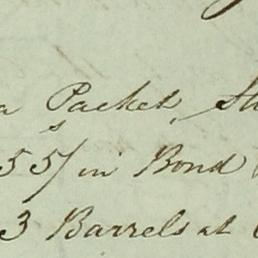 a Packet, St
55/s in Bond
3 Barrels at